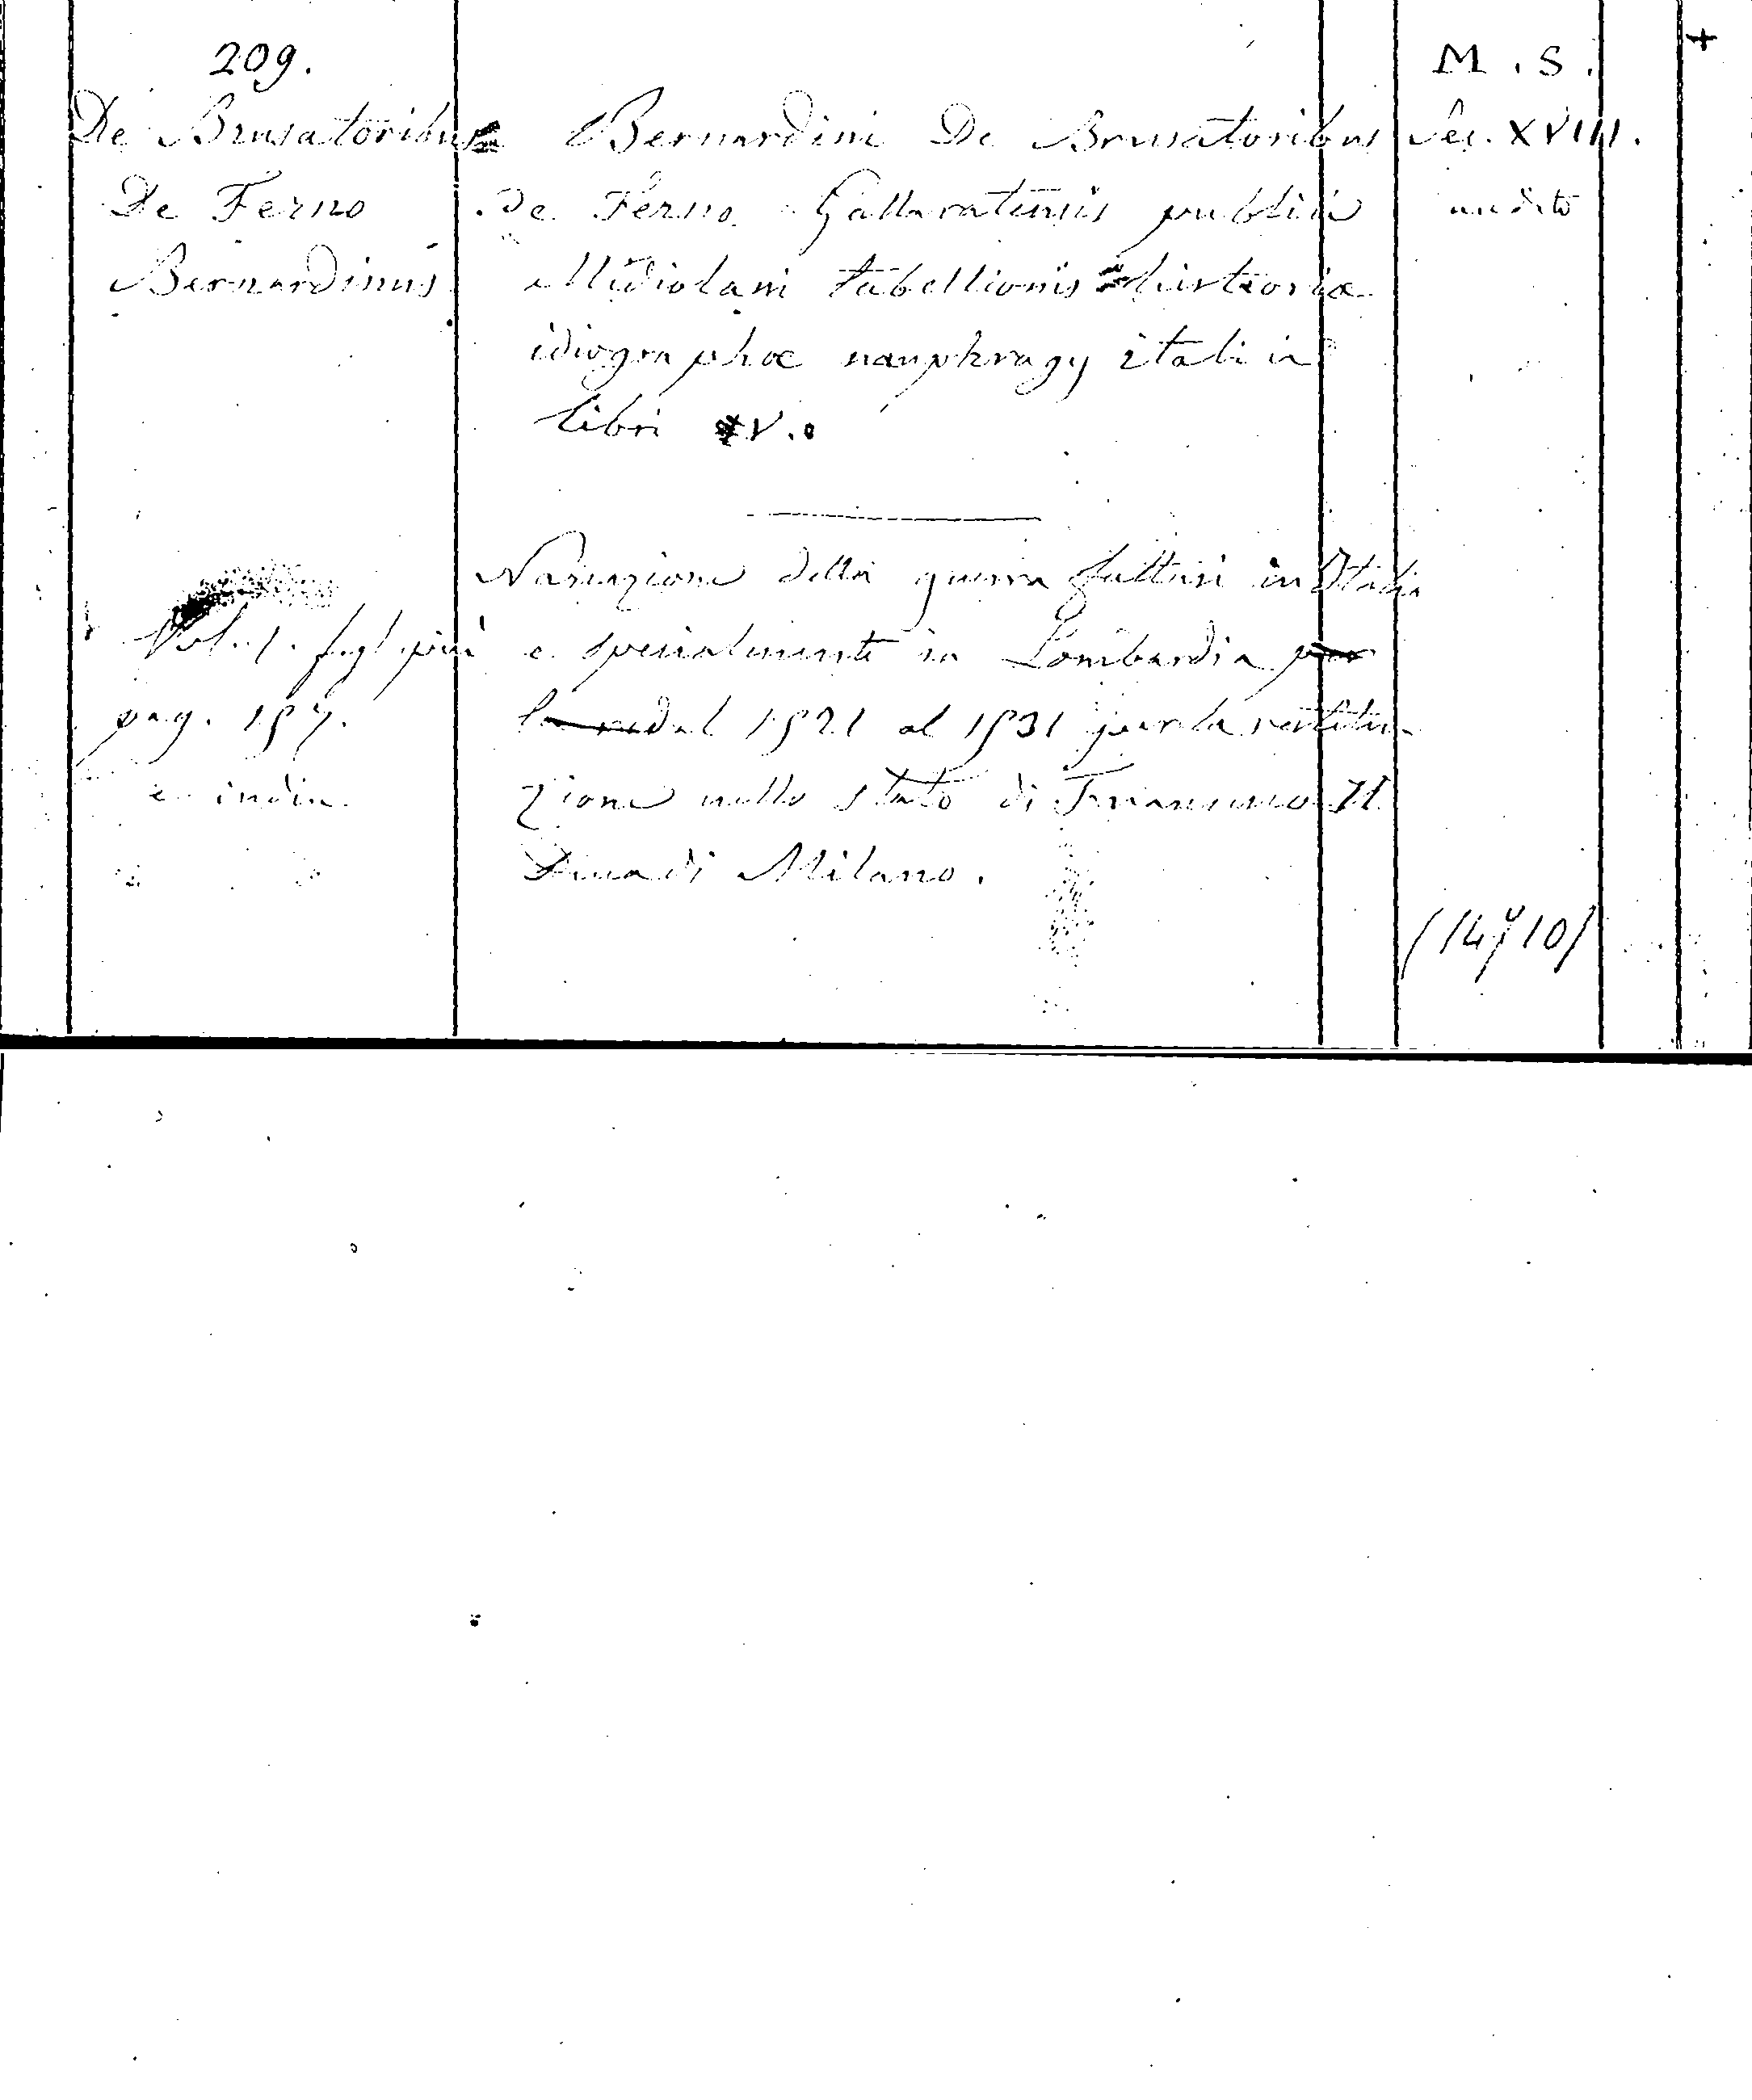 209.
De Brusatoribus
De Ferno
Bernardinus
Vol. 1. fogl. più
pag. 197.
e indice
Bernardini De Brusatoribus
de Ferno Gallaratensis publici
Midiolani tabellionis
idiographæ nauphragy itali
libri V.
Narrazione della guerra fattasi in Italia
e specialmente in Lombardia per
dal 1521 al 1531 per la restitu-
zione nello stato di Francesco II
Duca di Milano.
M. S.
Sec. XVIII.
inedito
+